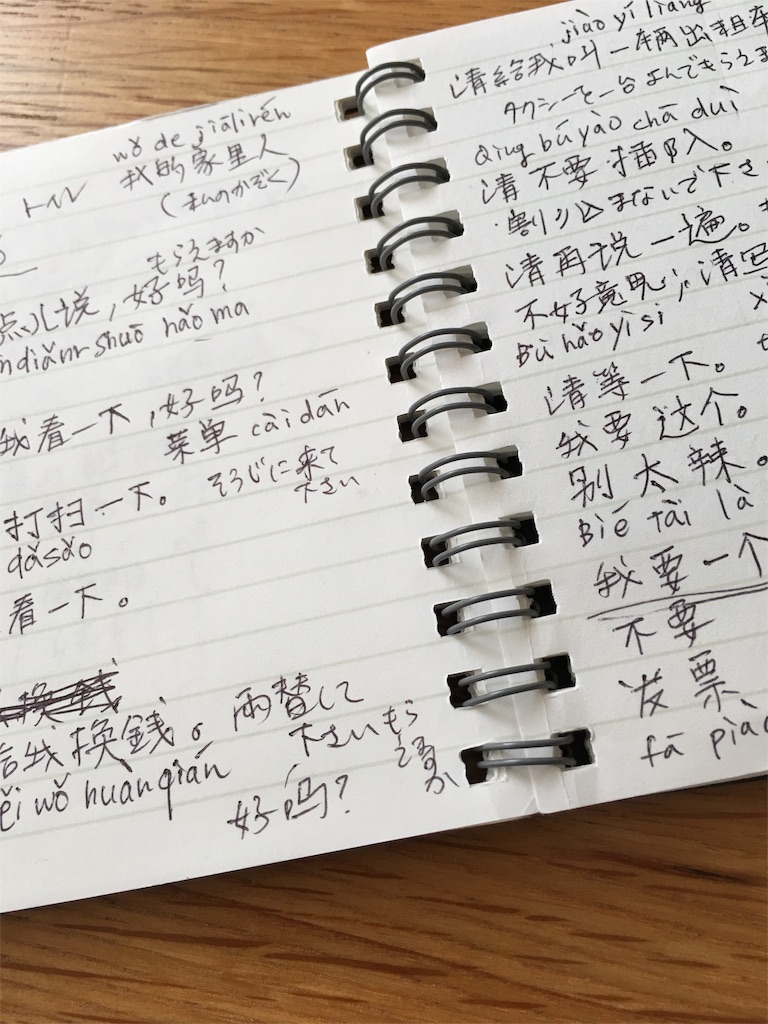 wǒ de jiālǐrén
我的家里人
トイレ
(私のかぞく)
もらえますか
点儿说,好吗?
diǎnr shuō hǎo ma
我看一下,好吗?
菜单 càidān
打扫一下。 そうじに来て
下さい
dǎsǎo
看一下。
换錢
给我换錢。 両替して
下さい もら
えるか
gěi wǒ huànqián
好吗?
jiào yí liàng
请給我叫一辆出租车
タクシーを一台よんでもらえま
Qǐng búyào chā duì
请不要插队。
割り込まないで下さ
请再说一遍。
不好意思,请写
Bù hǎo yì si
请等一下。
我要这个。
别太辣。
Bié tài là
我要一个
不要
发票
fā piào